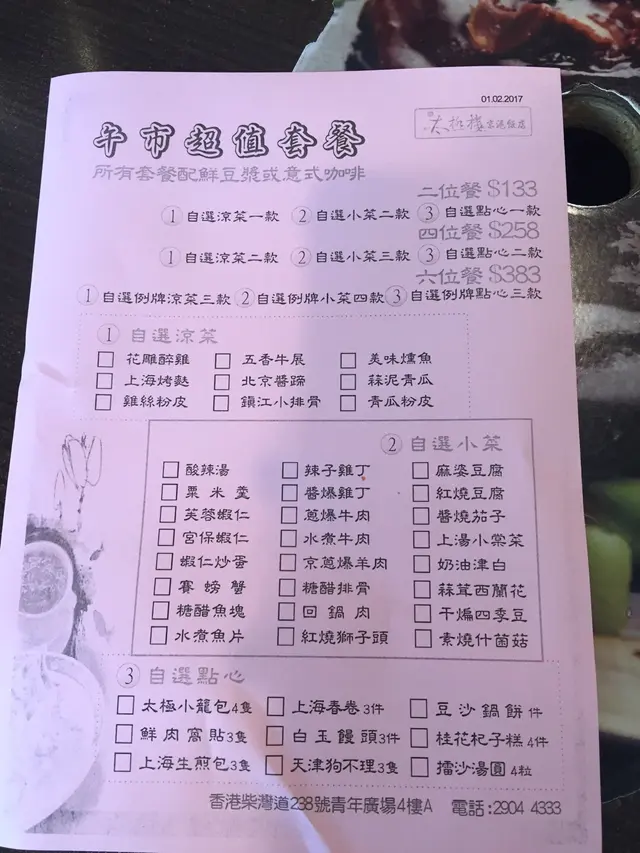 01.02.2017
太極樓京滬飯店
午市超值套餐
所有套餐配鮮豆漿或意式咖啡
二位餐 $133
① 自選涼菜一款 ② 自選小菜二款 ③ 自選點心一款
四位餐 $258
① 自選涼菜二款 ② 自選小菜三款 ③ 自選點心二款
六位餐 $383
① 自選例牌涼菜三款 ② 自選例牌小菜四款 ③ 自選例牌點心三款
① 自選涼菜
花雕醉雞 五香牛展 美味燻魚
上海烤麩 北京醬蹄 蒜泥青瓜
雞絲粉皮 鎮江小排骨 青瓜粉皮
② 自選小菜
酸辣湯 辣子雞丁 麻婆豆腐
粟米羹 醬爆雞丁 紅燒豆腐
芙蓉蝦仁 蔥爆牛肉 醬燒茄子
宮保蝦仁 水煮牛肉 上湯小棠菜
蝦仁炒蛋 京蔥爆羊肉 奶油津白
賽螃蟹 糖醋排骨 蒜茸西蘭花
糖醋魚塊 回鍋肉 干煸四季豆
水煮魚片 紅燒獅子頭 素燒什菌菇
③ 自選點心
太極小籠包4隻 上海春卷3件 豆沙鍋餅件
鮮肉窩貼3隻 白玉饅頭3件 桂花杞子糕4件
上海生煎包3隻 天津狗不理3隻 擂沙湯圓4粒
香港柴灣道238號青年廣場4樓A 電話:2904 4333